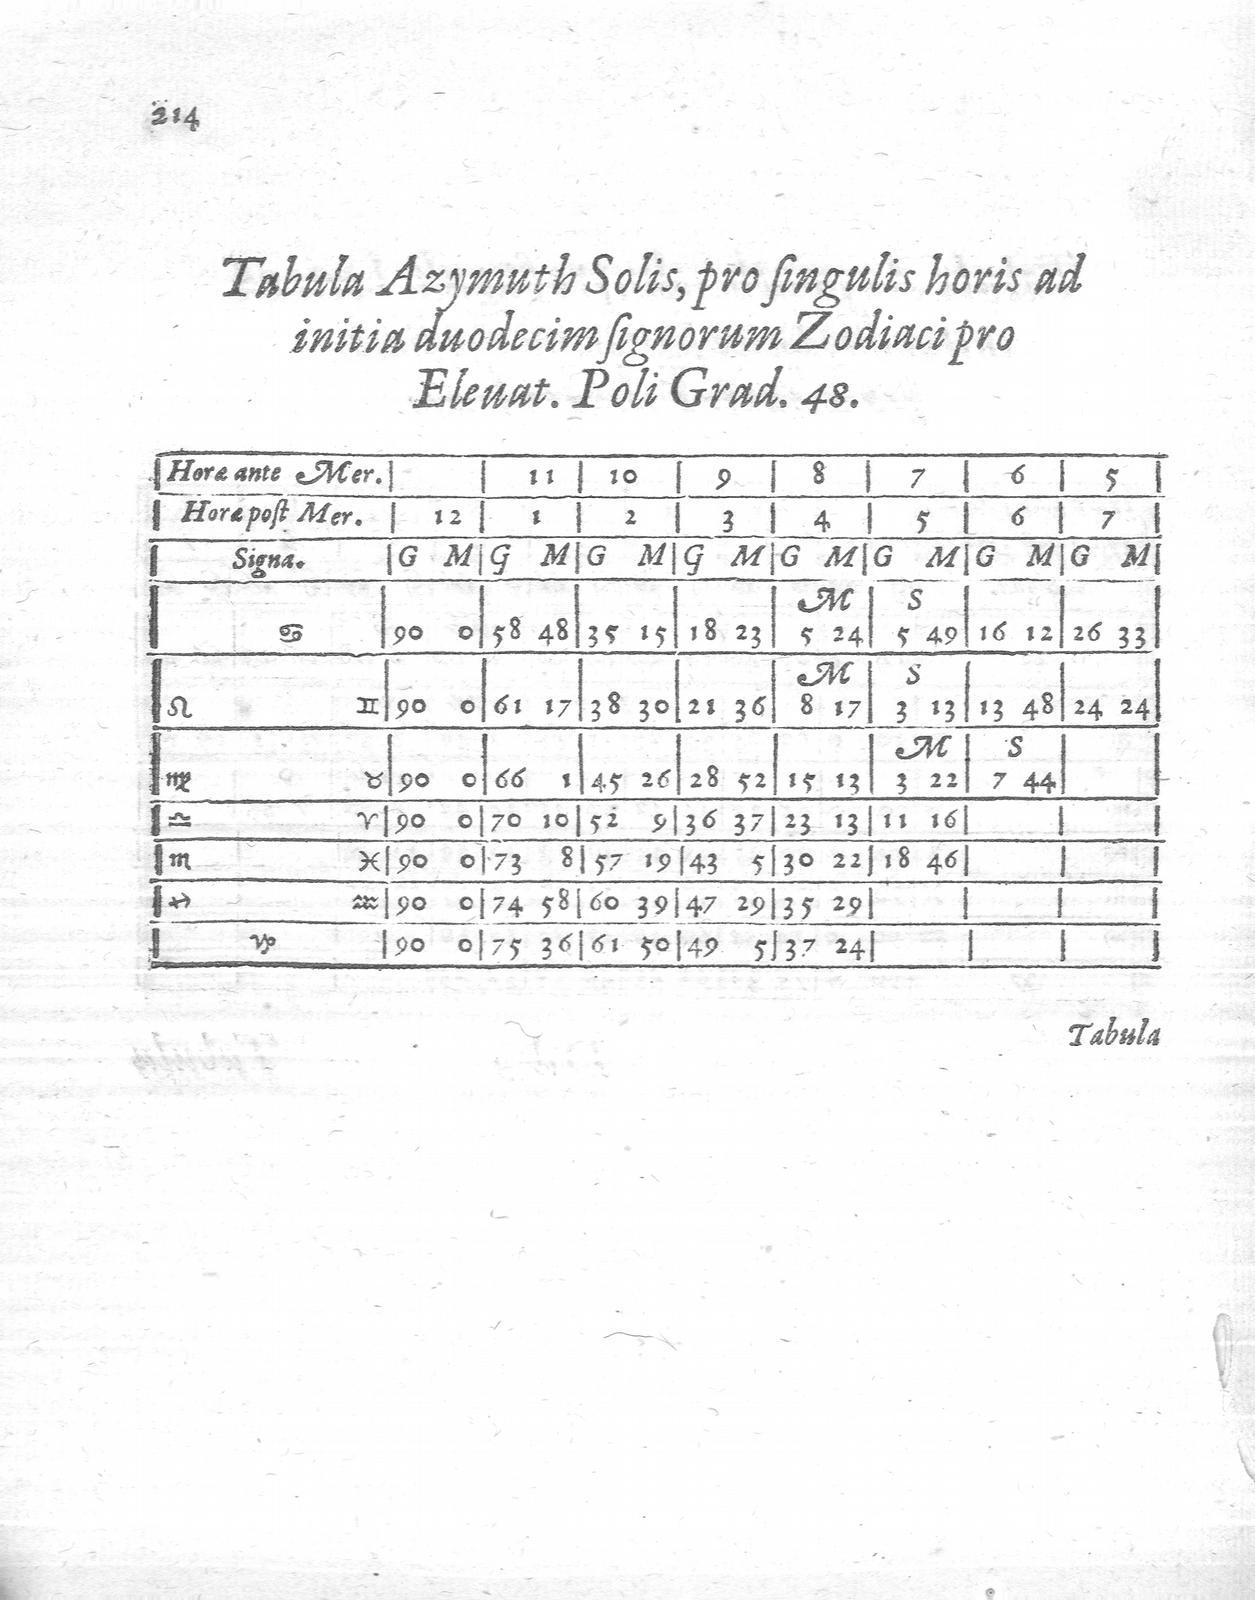 214
Tabula Azymuth Solis, pro ſingulis horis ad
initia duodecim ſignorum Zodiaci pro
Eleuat. Poli Grad. 48.
Horæ ante Mer. 11 10 9 8 7 6 5
Horæ poſt Mer. 12 1 2 3 4 5 6 7
Signa. G M G M G M G M G M G M G M G M
M S
♋ 90 0 58 48 35 15 18 23 5 24 5 49 16 12 26 33
M S
♌ ♊ 90 0 61 17 38 30 21 36 8 17 3 13 13 48 24 24
M S
♍ ♉ 90 0 66 1 45 26 28 52 15 13 3 22 7 44
♎ ♈ 90 0 70 10 52 9 36 37 23 13 11 16
♏ ♓ 90 0 73 8 57 19 43 5 30 22 18 46
♐ ♒ 90 0 74 58 60 39 47 29 35 29
♑ 90 0 75 36 61 50 49 5 37 24
Tabula